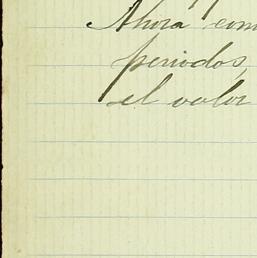 Ahora com
periodos,
el valor